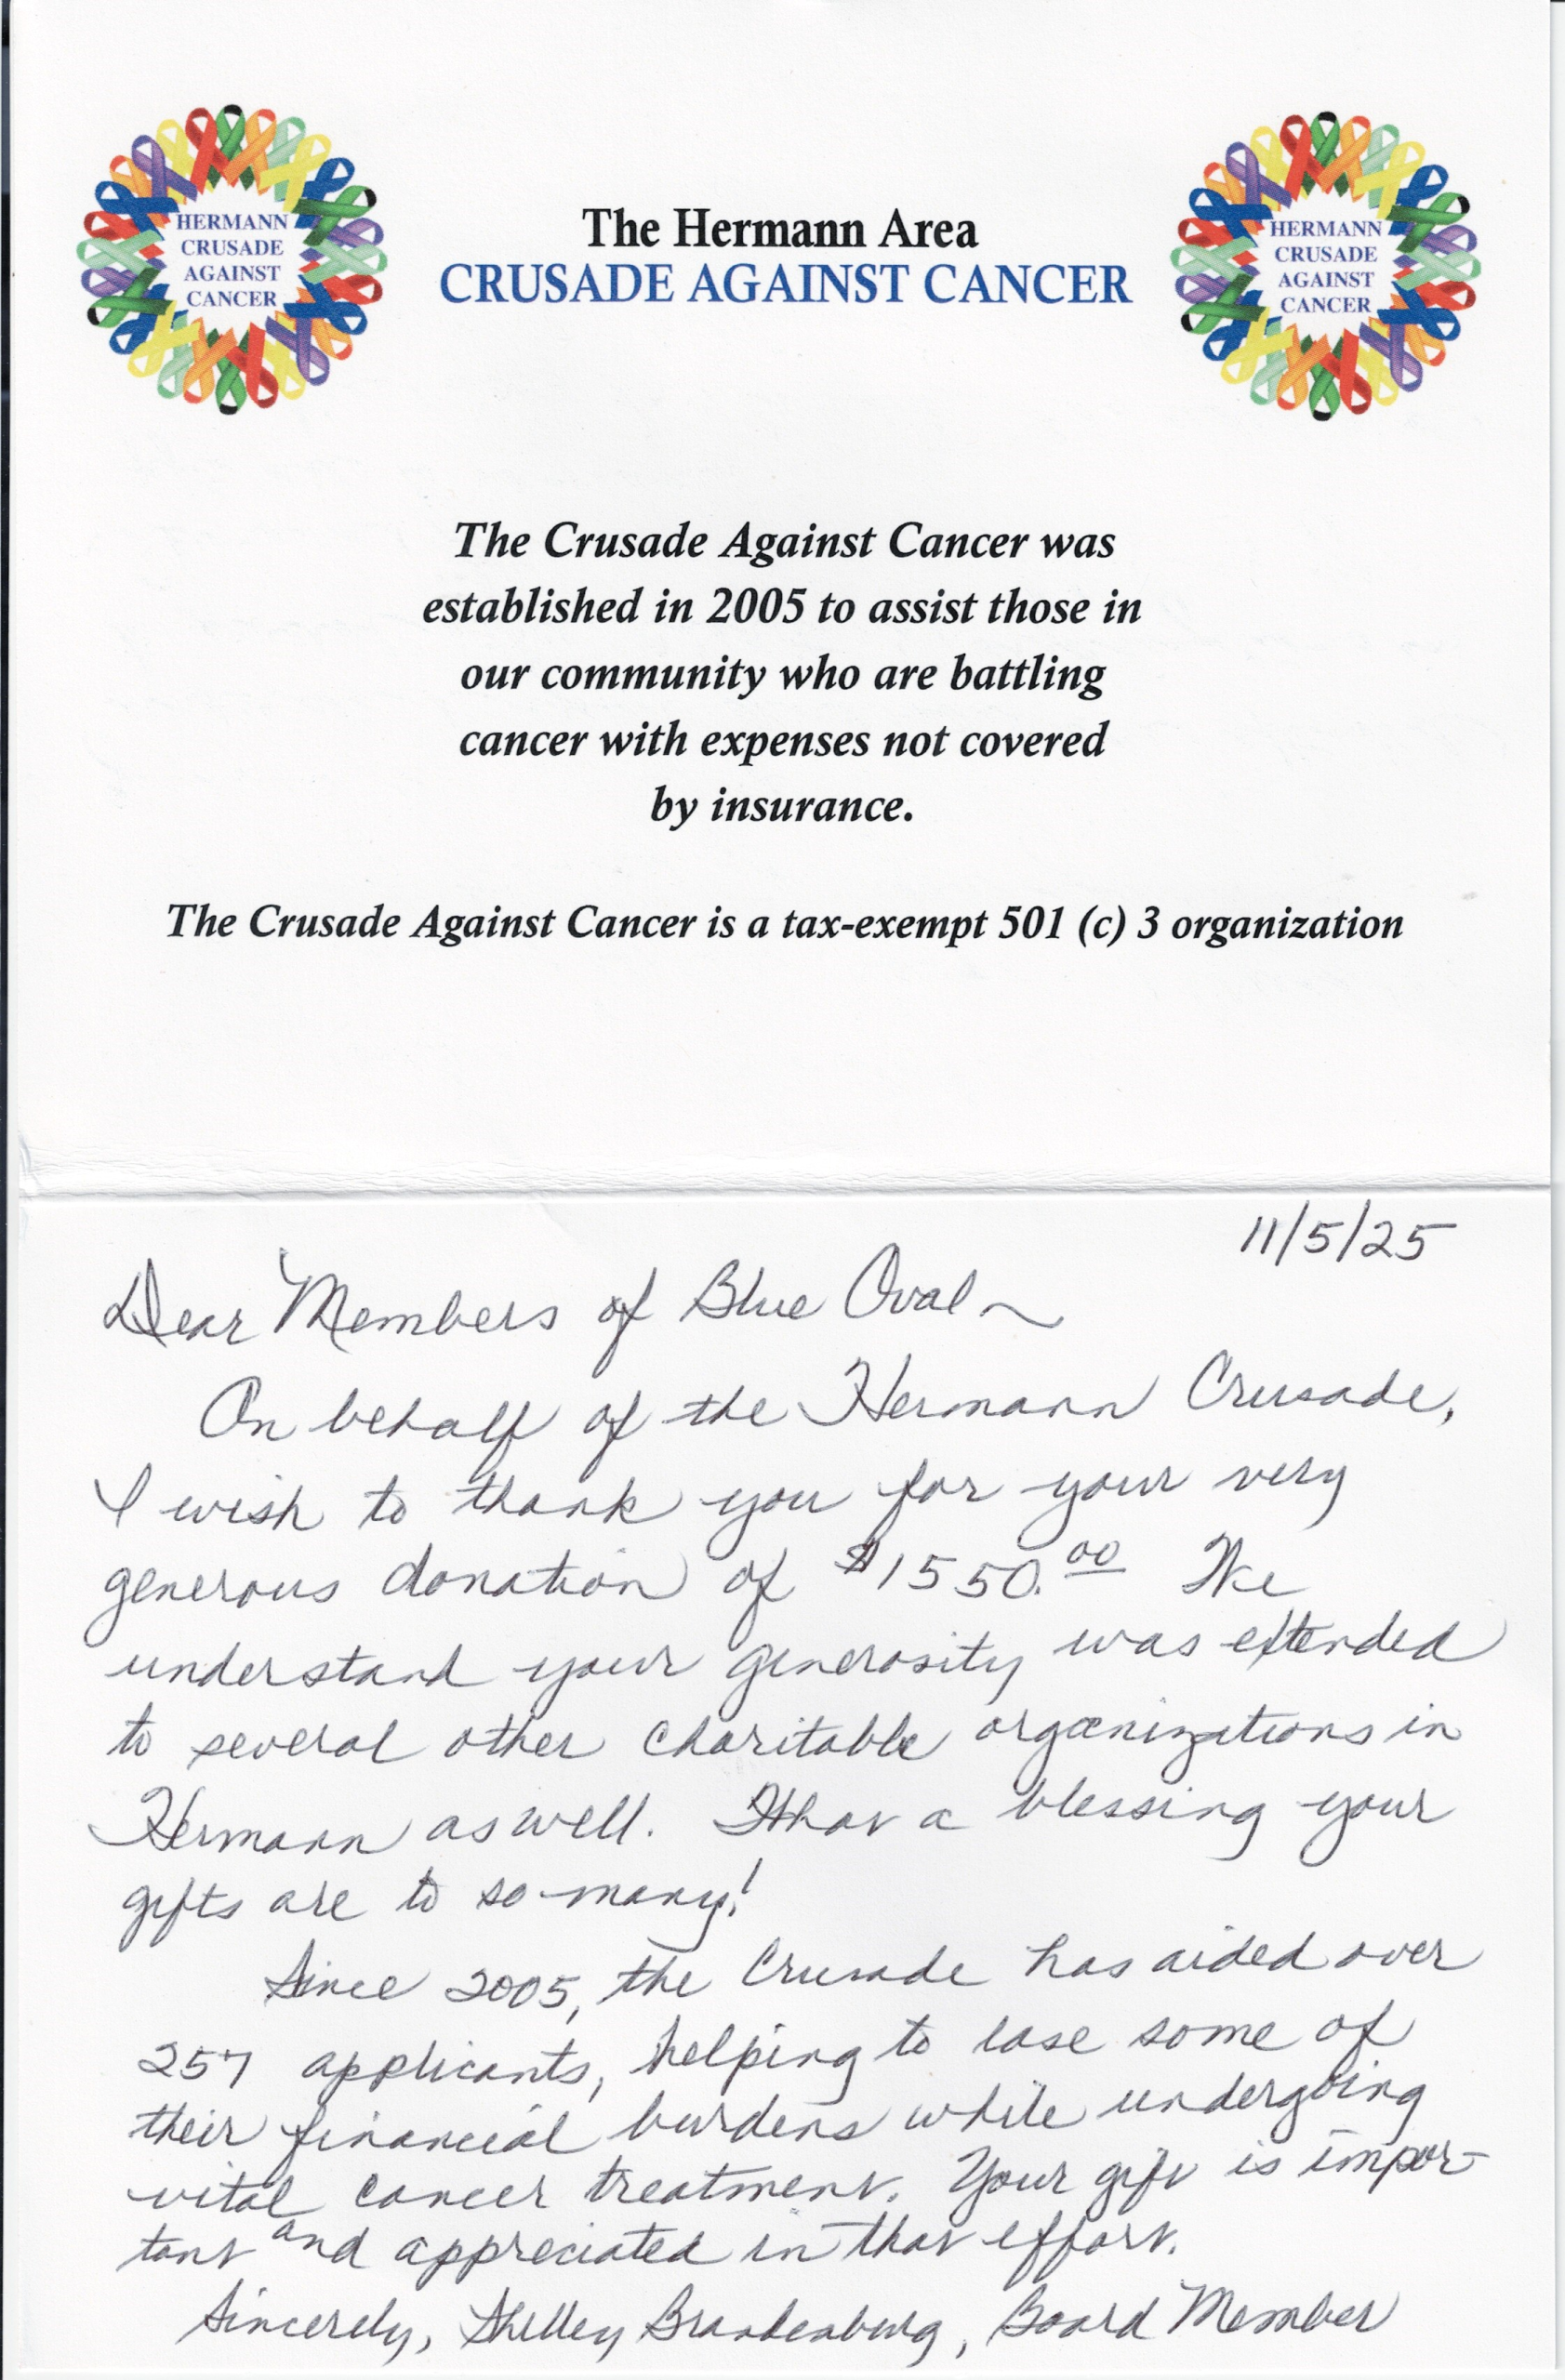 HERMANN
CRUSADE
AGAINST
CANCER
The Hermann Area
CRUSADE AGAINST CANCER
HERMANN
CRUSADE
AGAINST
CANCER
The Crusade Against Cancer was
established in 2005 to assist those in
our community who are battling
cancer with expenses not covered
by insurance.
The Crusade Against Cancer is a tax-exempt 501 (c) 3 organization
11/5/25
Dear Members of Blue Oval ~
On behalf of the Hermann Crusade,
I wish to thank you for your very
generous donation of $1550.00 We
understand your generosity was extended
to several other charitable organizations in
Hermann as well. What a blessing your
gifts are to so many!
Since 2005, the Crusade has aided over
257 applicants, helping to ease some of
their financial burdens while undergoing
vital cancer treatment. Your gift is impor-
tant and appreciated in that effort.
Sincerely, Shelley Brandenburg, Board Member